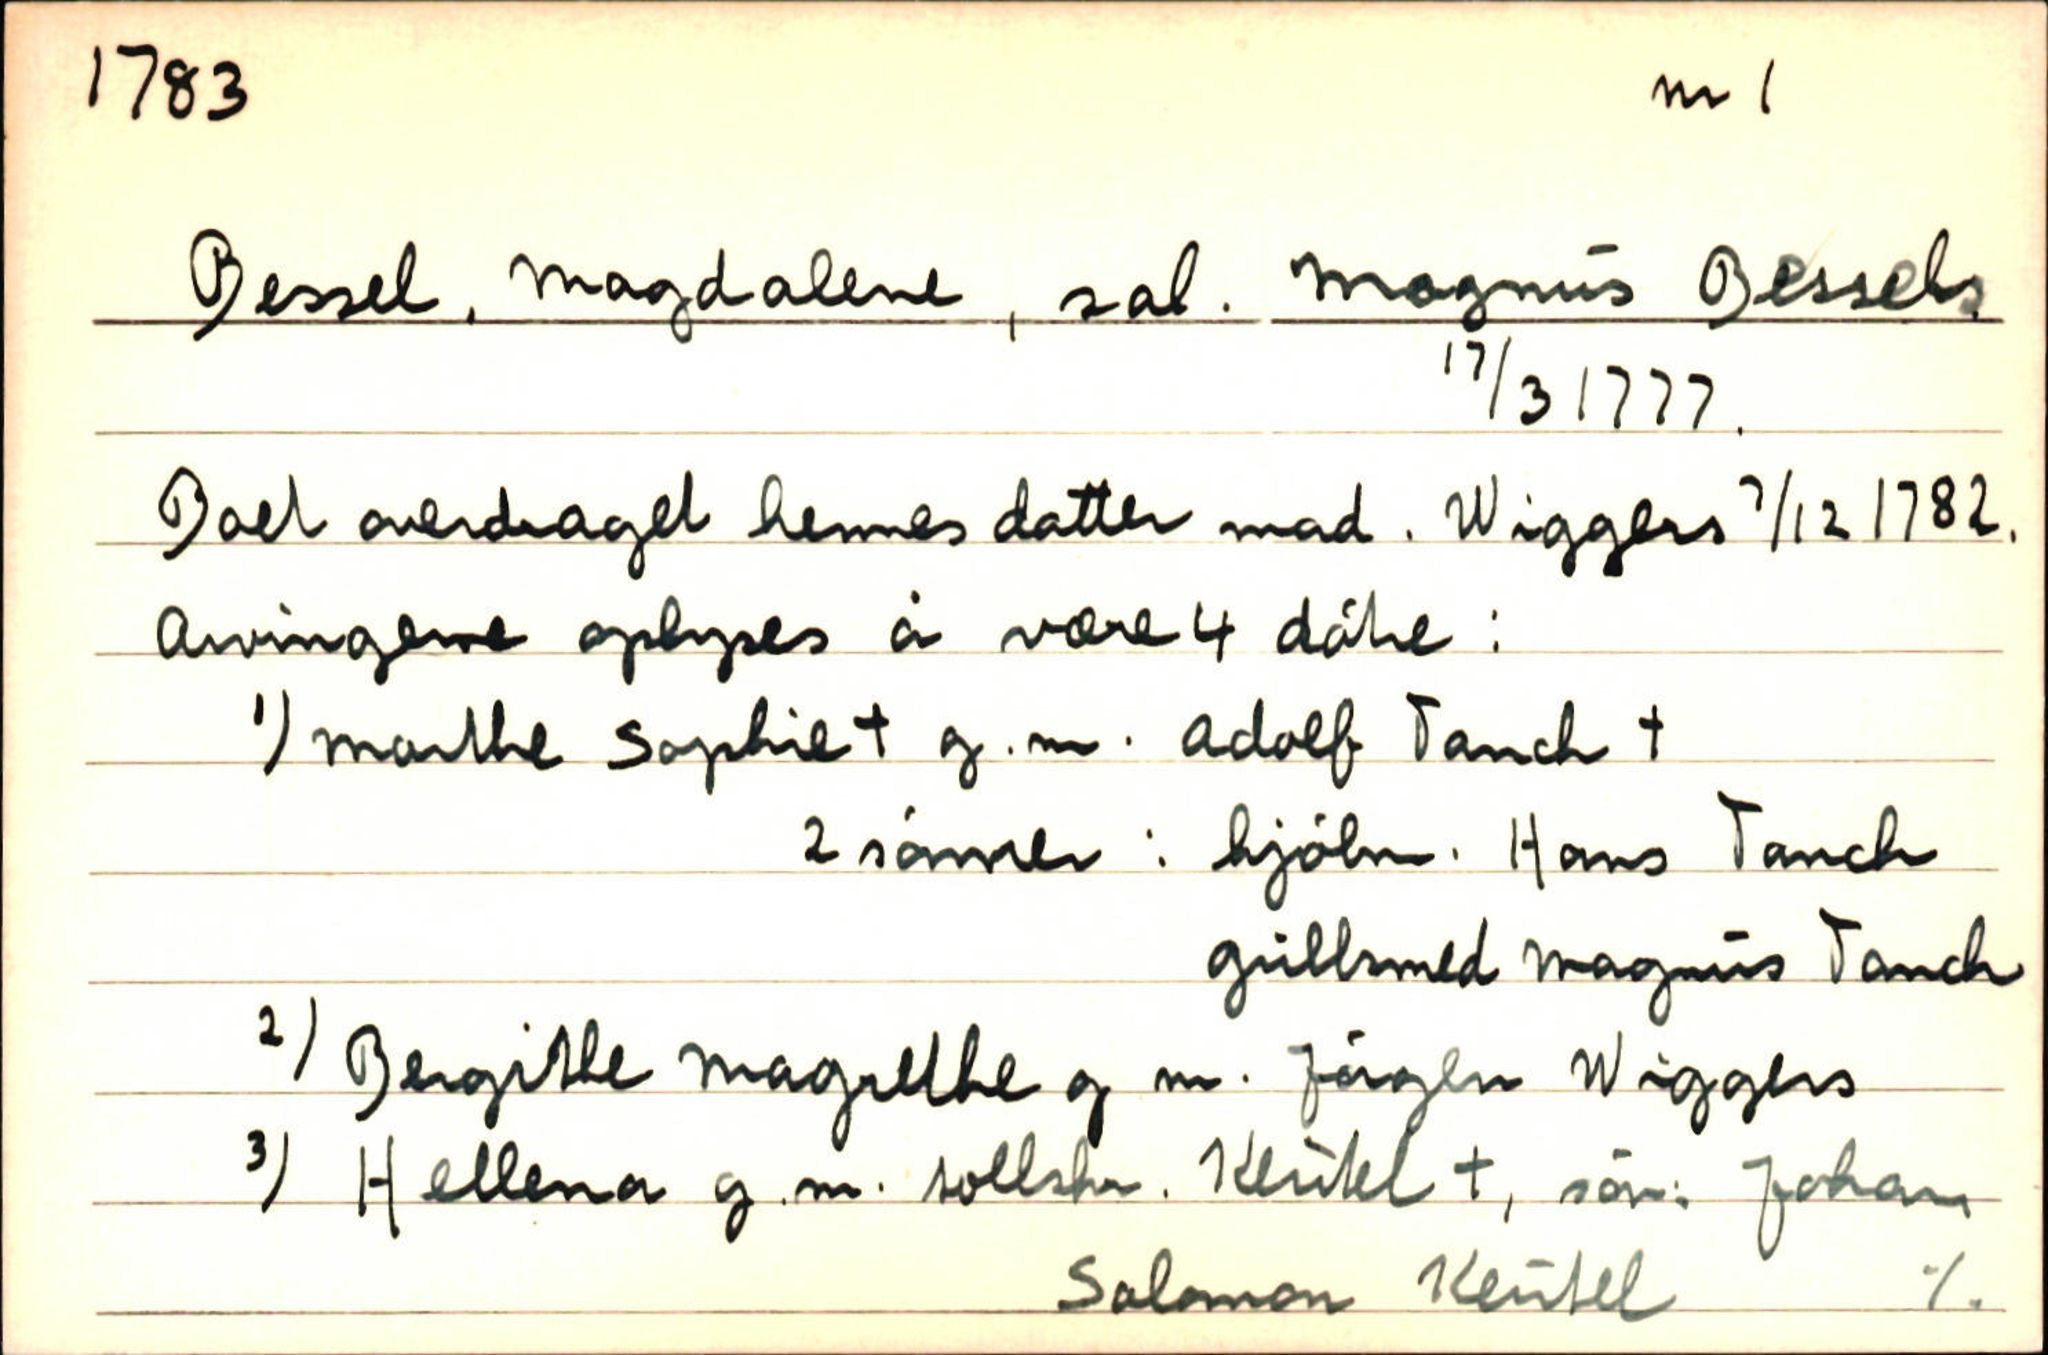 1783 nr 1
Bessel, Magdalene, sal. Magnus Bessels
17/3 1777.
Boet overdraget hennes datter mad. Wiggers 7/12 1782.
Arvingene oplyses å være 4 døtre:
1) Marthe Sophie † g.m. Adolf Tanch †
2 sønner: kjøbm. Hans Tanch
gullsmed Magnus Tanch
2) Bergithe Magrethe g m. Jørgen Wiggers
3) Hellena g.m. tollskr. Keutel †, søn: Johan
Salomon Keutel ·/.